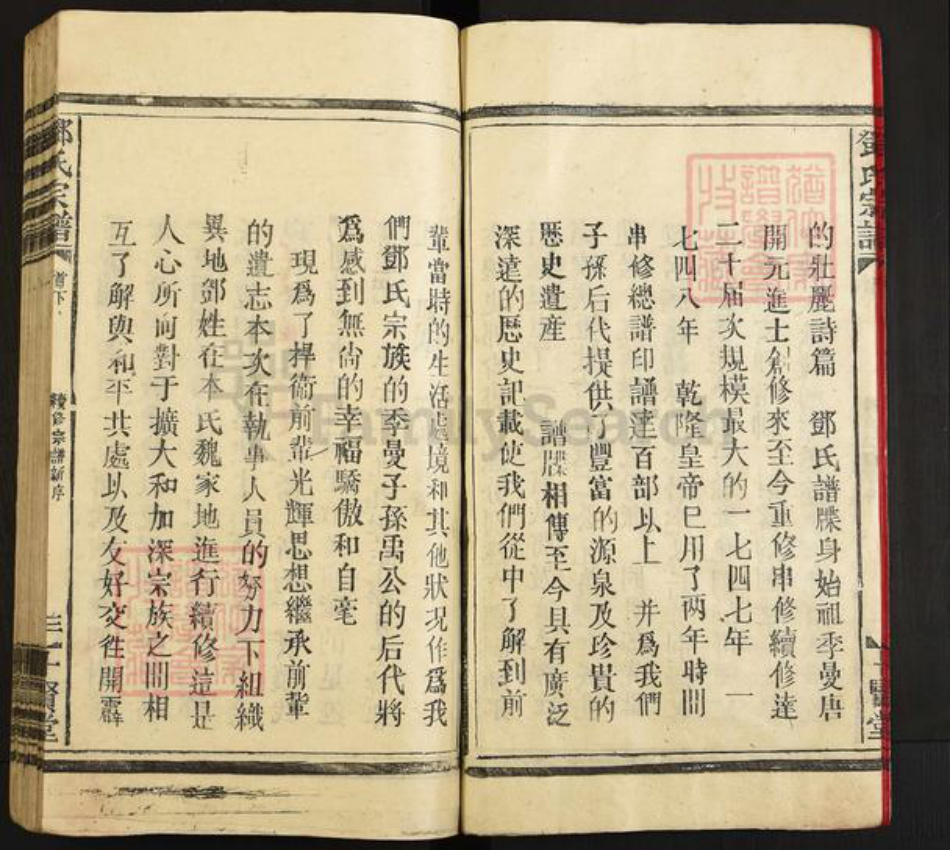 鄧氏宗譜
的壯麗詩篇　鄧氏譜牒身始祖季曼唐
開元進士創修來至今重修串修續修達
二十届次規模最大的一七四七年　一
七四八年　乾隆皇帝巳用了两年時間
串修總譜印譜達百部以上　并爲我們
子孫后代提供了豐富的源泉及珍貴的
歷史遺産　譜牒相傳至今具有廣泛
深遠的歷史記載使我們從中了解到前
一賢堂
輩當時的生活處境和其他狀况作爲我
們鄧氏宗族的季曼子孫禹公的后代將
爲感到無尙的幸福驕傲和自毫
現爲了捍衞前輩光輝思想繼承前輩
的遺志本次在執事人員的努力下組織
異地鄧姓在本氏魏家地進行續修這是
人心所向對于擴大和加深宗族之間相
互了解與和平共處以及友好交徃開霹
鄧氏宗譜
首下
續修宗譜新序
三
一賢堂
FamilySearch